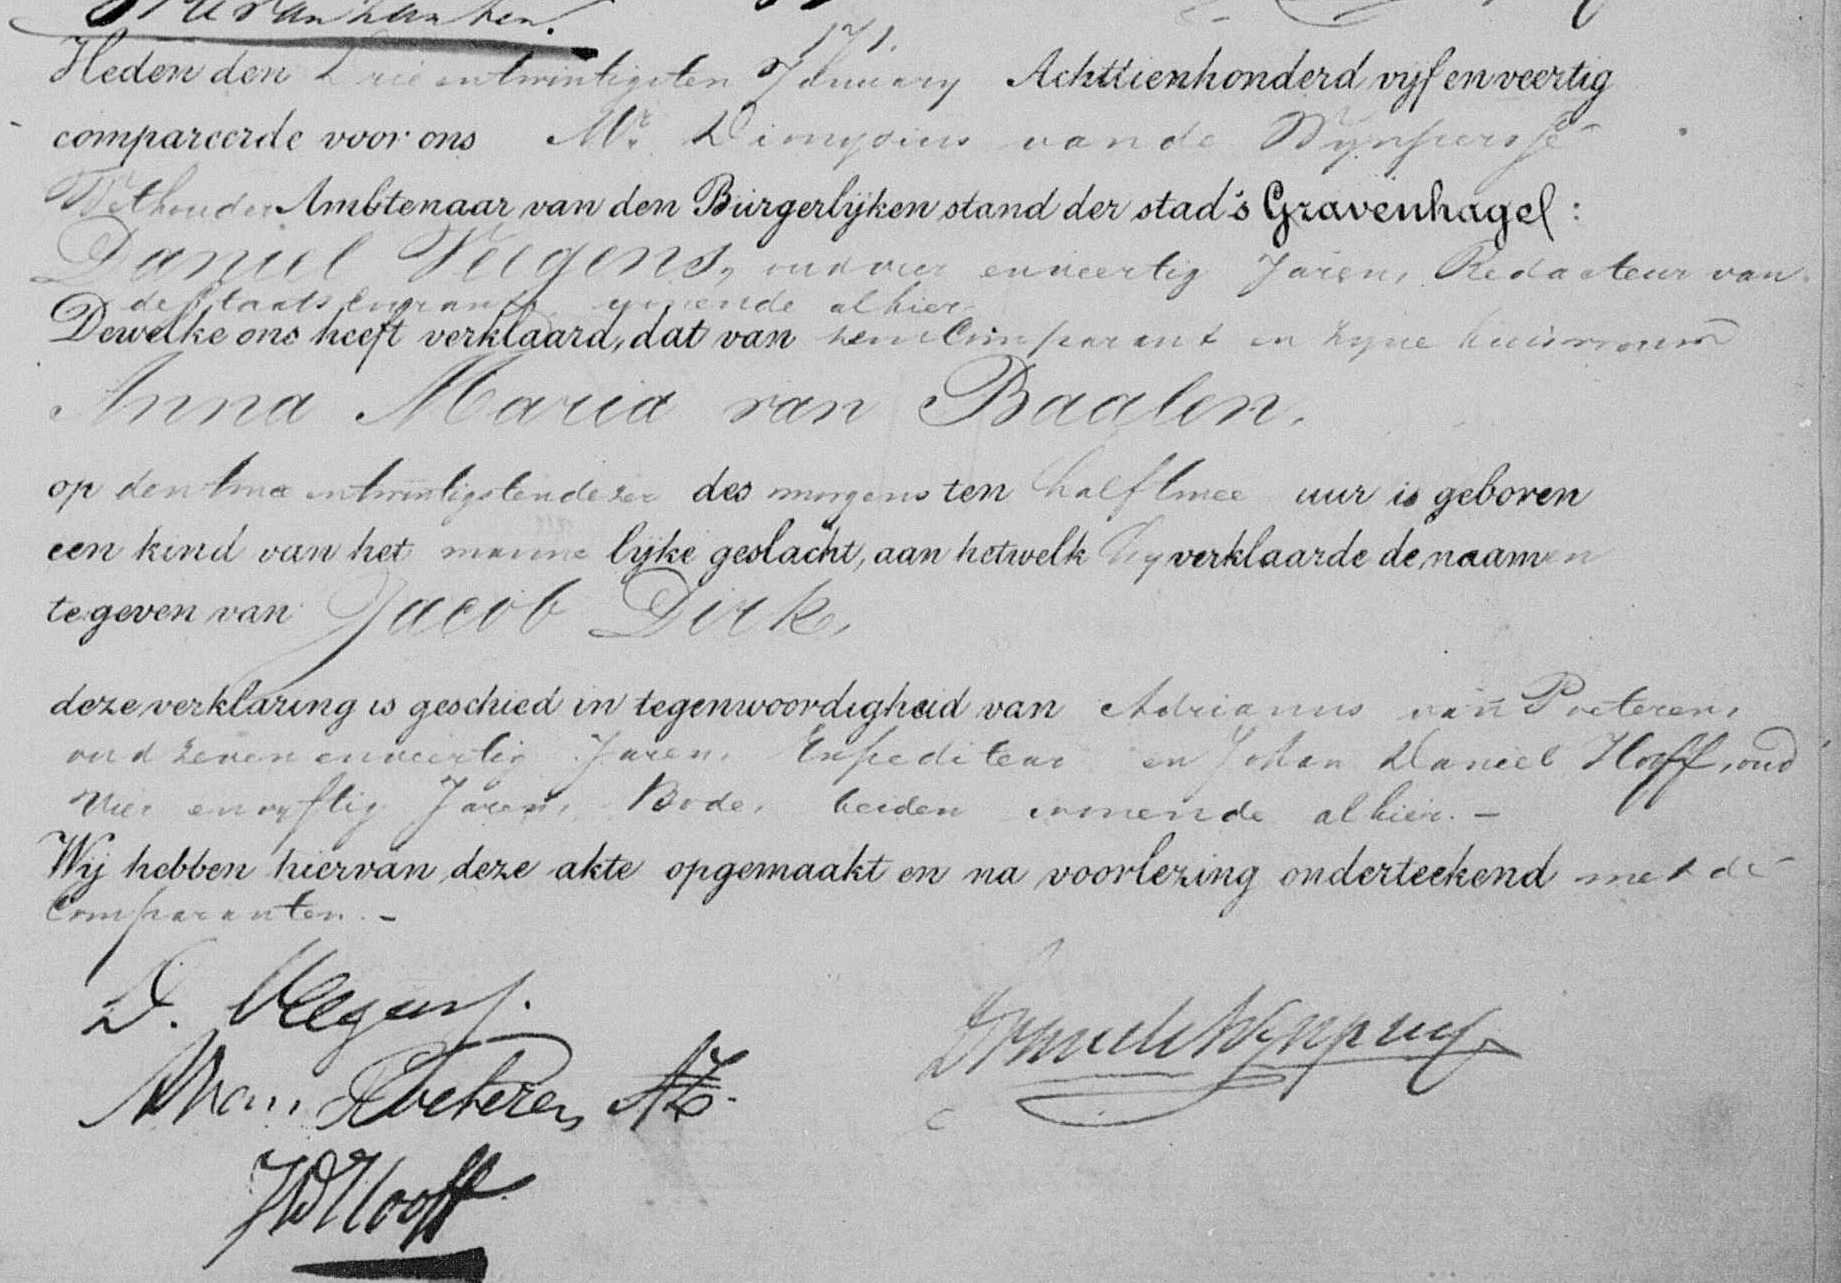 171.
Heden den Drieentwintigsten January Achttienhonderd vijf en veertig
compareerde voor ons Mr. Dionysius van de Wynpersse
Wethouder Ambtenaar van den Burgerlijken stand der stad 's Gravenhage :
Daniel Veegens, oud vier en veertig Jaren, Redacteur van
de Staats Courant, wonende alhier
Dewelke ons heeft verklaard, dat van hem Comparant en zyne huisvrouw
Anna Maria van Baalen,
op den twee entwintigsten dezer des morgens ten half twee uur is geboren
een kind van het manne lijke geslacht, aan hetwelk hy verklaarde de naamen
te geven van Jacob Dirk,
deze verklaring is geschied in tegenwoordigheid van Adrianus van Poeteren,
oud zeven en veertig Jaren, Expediteur en Johan Daniel Hooff, oud
vier en vyftig Jaren, Bode, beiden wonende alhier. -
Wij hebben hiervan deze akte opgemaakt en na voorlezing onderteekend met de
Comparanten. -
D. Veegens.
A van Poeteren AZ.
JD Hooff